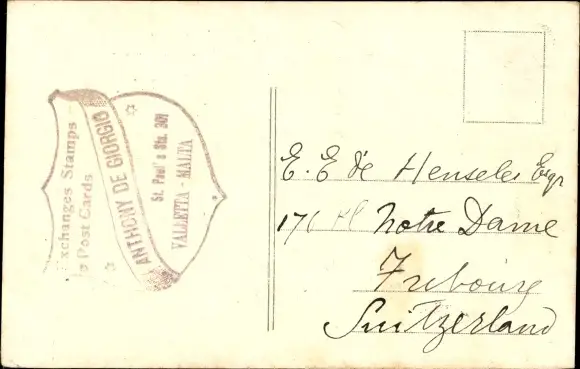 Exchanges Stamps
& Post Cards
ANTHONY DE GIORGIO
St. Paul's Str. 301
VALLETTA - MALTA
E. E de Henseler Esqr
176 Pl Notre Dame
Fribourg
Suitzerland